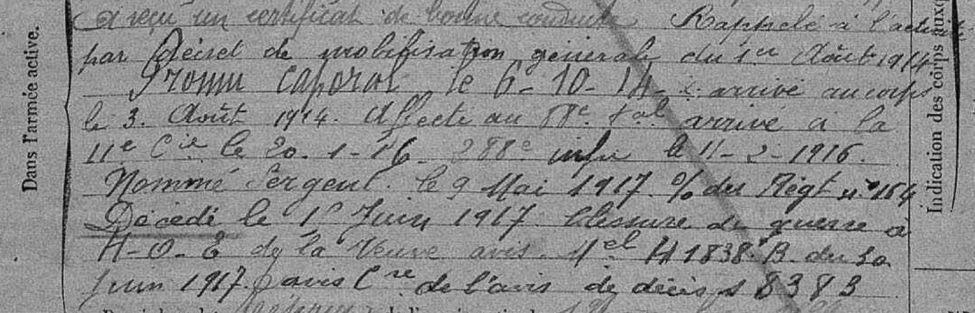 a reçu un certificat de bonne conduite Rappelé à l'activité
par Décret de mobilisation générale du 1er Août 1914
Promu Caporal le 6-10-14 arrivé au corps
le 3 Août 1914. Affecté au 88e arrivé à la
11e Cie le 20-1-16 288e infie le 11-2-1916.
Nommé Sergent le 9 Mai 1917 % du Régt n° 164
Décédé le 1er Juin 1917 blessure de guerre a
H-O-E de la Veuve avis Mel H 1838 B du 30
Juin 1917 avis de l'avis de décès 8383
Dans l'armée active.
Indication des corps auxq